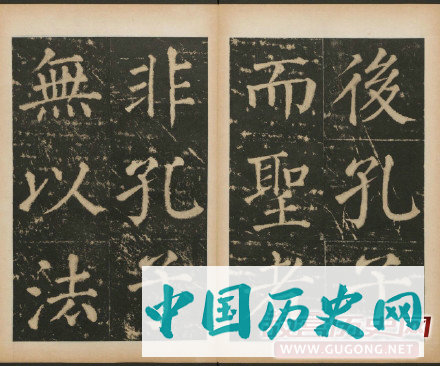 後孔
而聖
非孔
無以法
中国历史网
WWW.GUGONG.NET
1